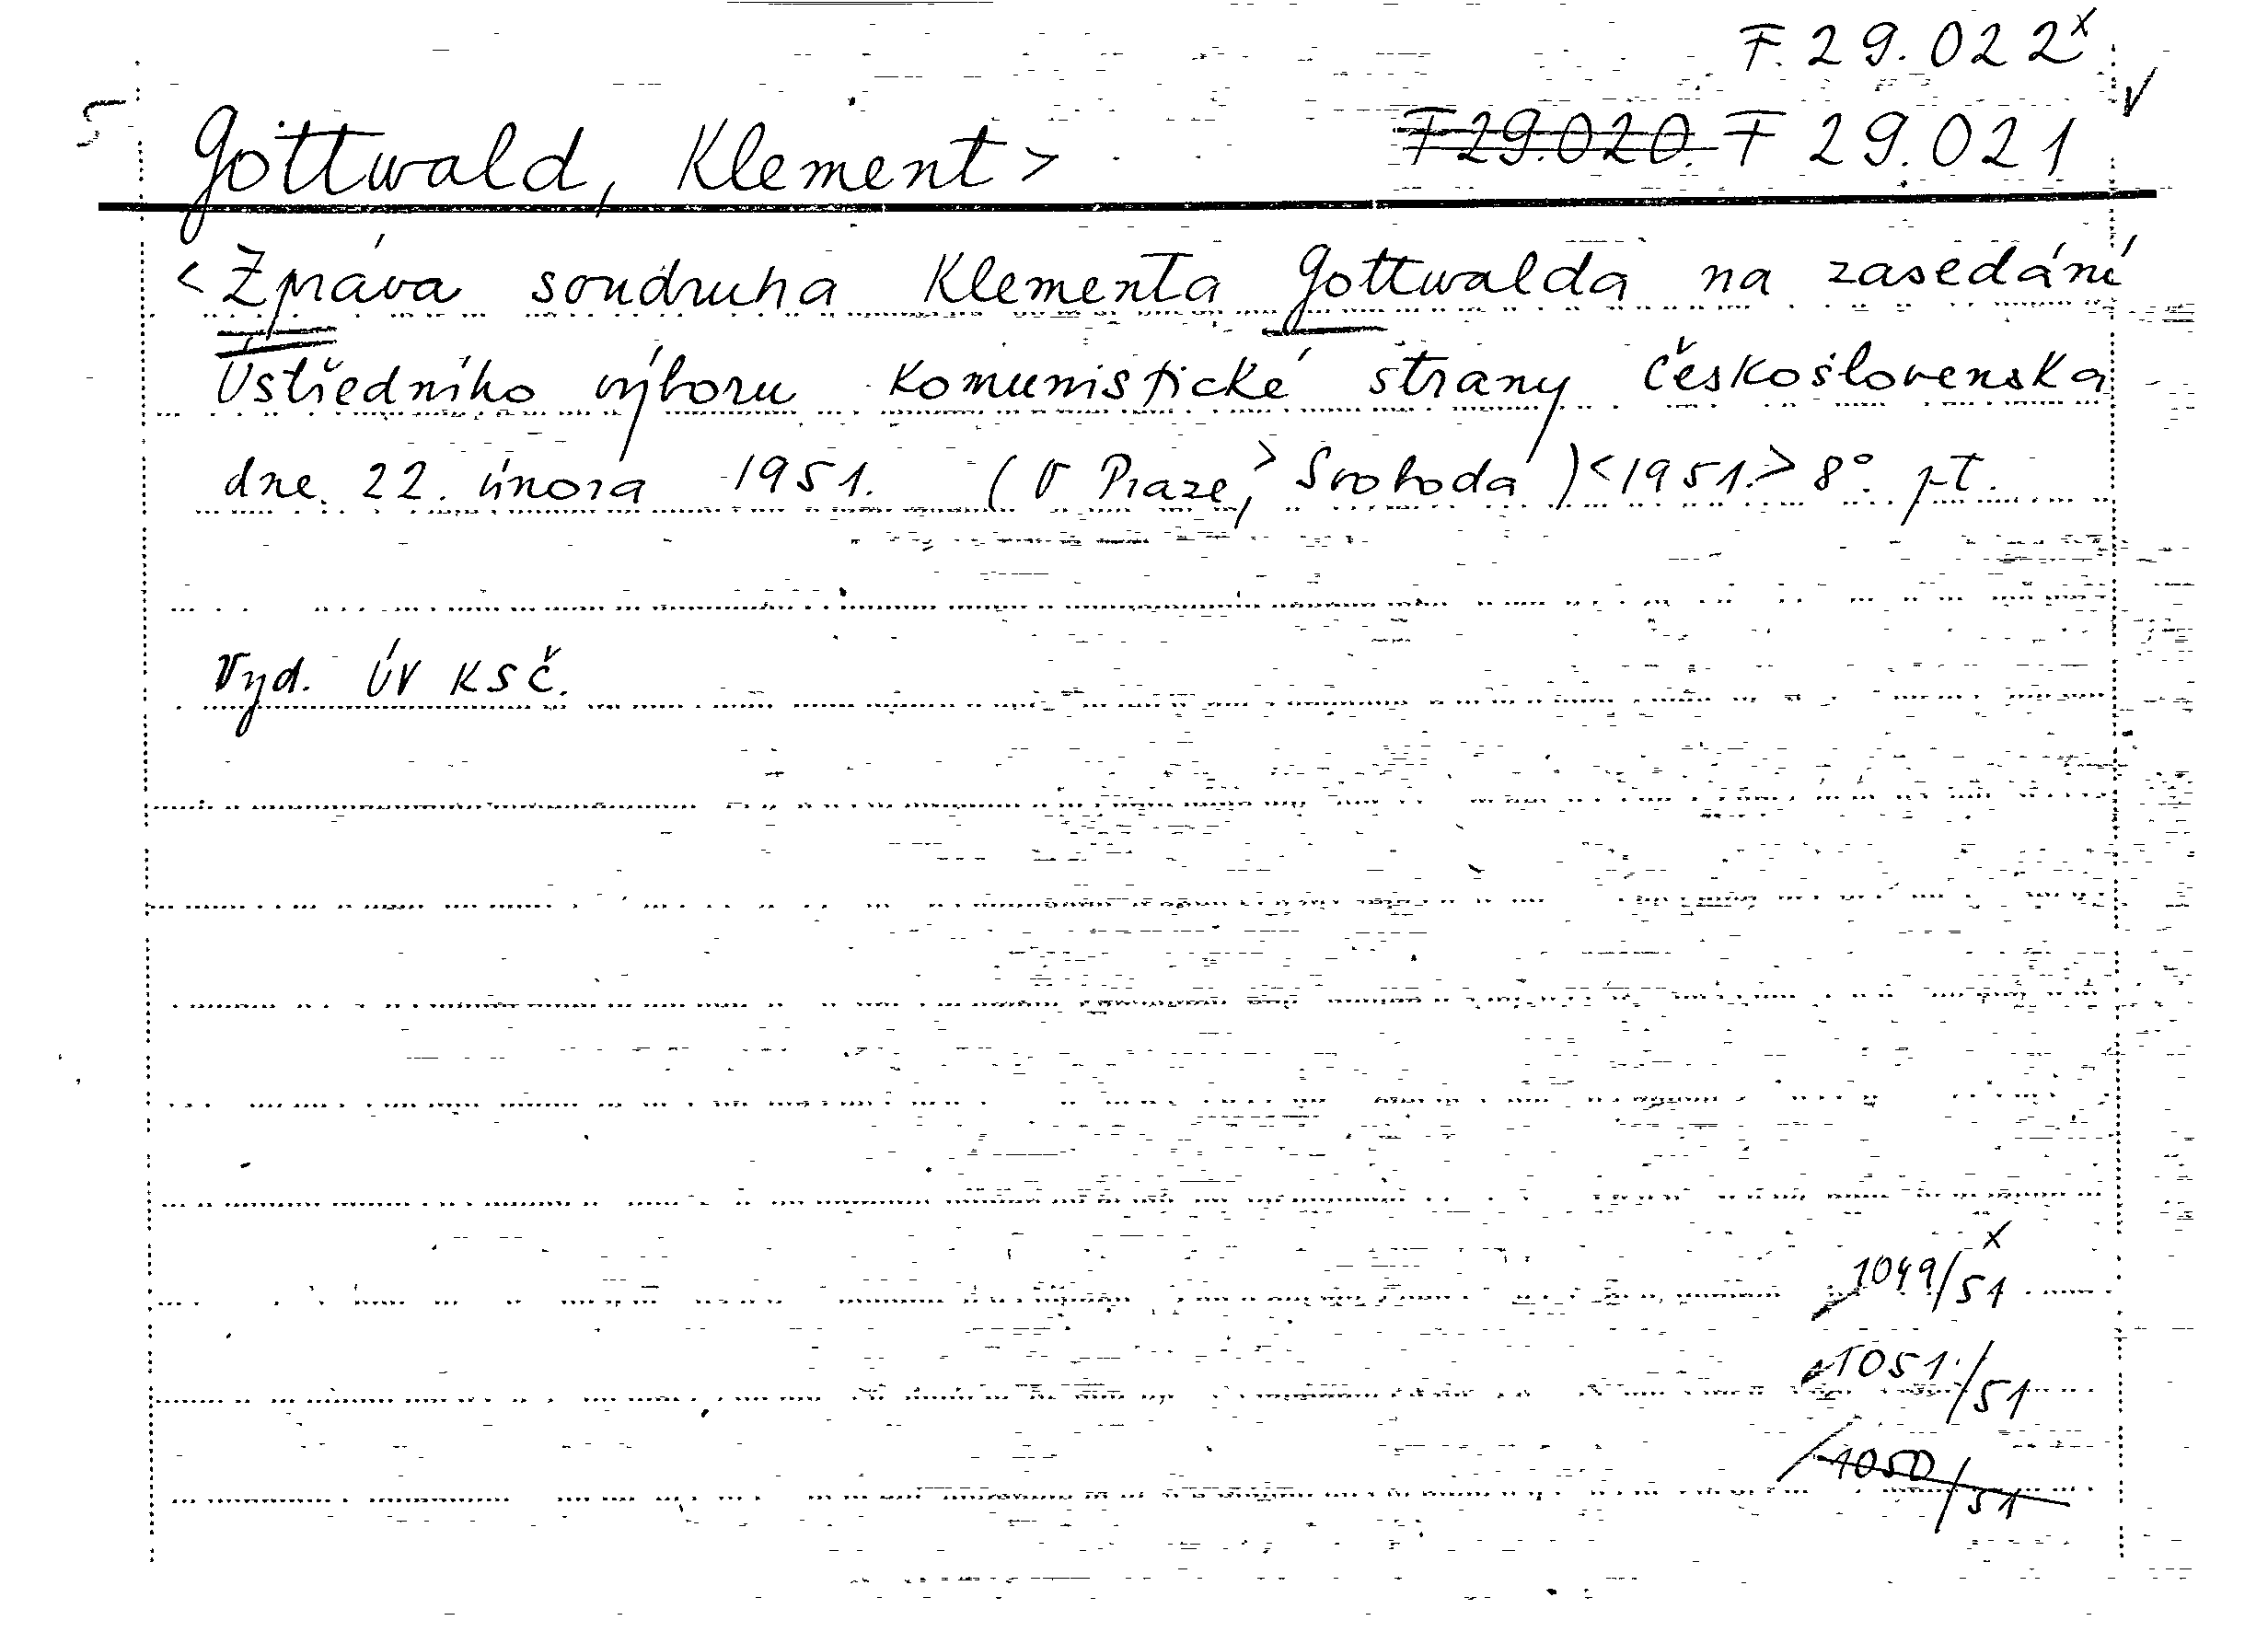 F 29.022x
Gottwald, Klement > F 29.020. F 29.021
< Zpráva soudruha Klementa Gottwalda na zasedání
Ústředního výboru Komunistické strany Československa
dne 22. února 1951. (V Praze,> Svoboda) <1951.> 8°. pt.
Vyd. ÚV KSČ.
1049/51 x
1051/51
1050/51